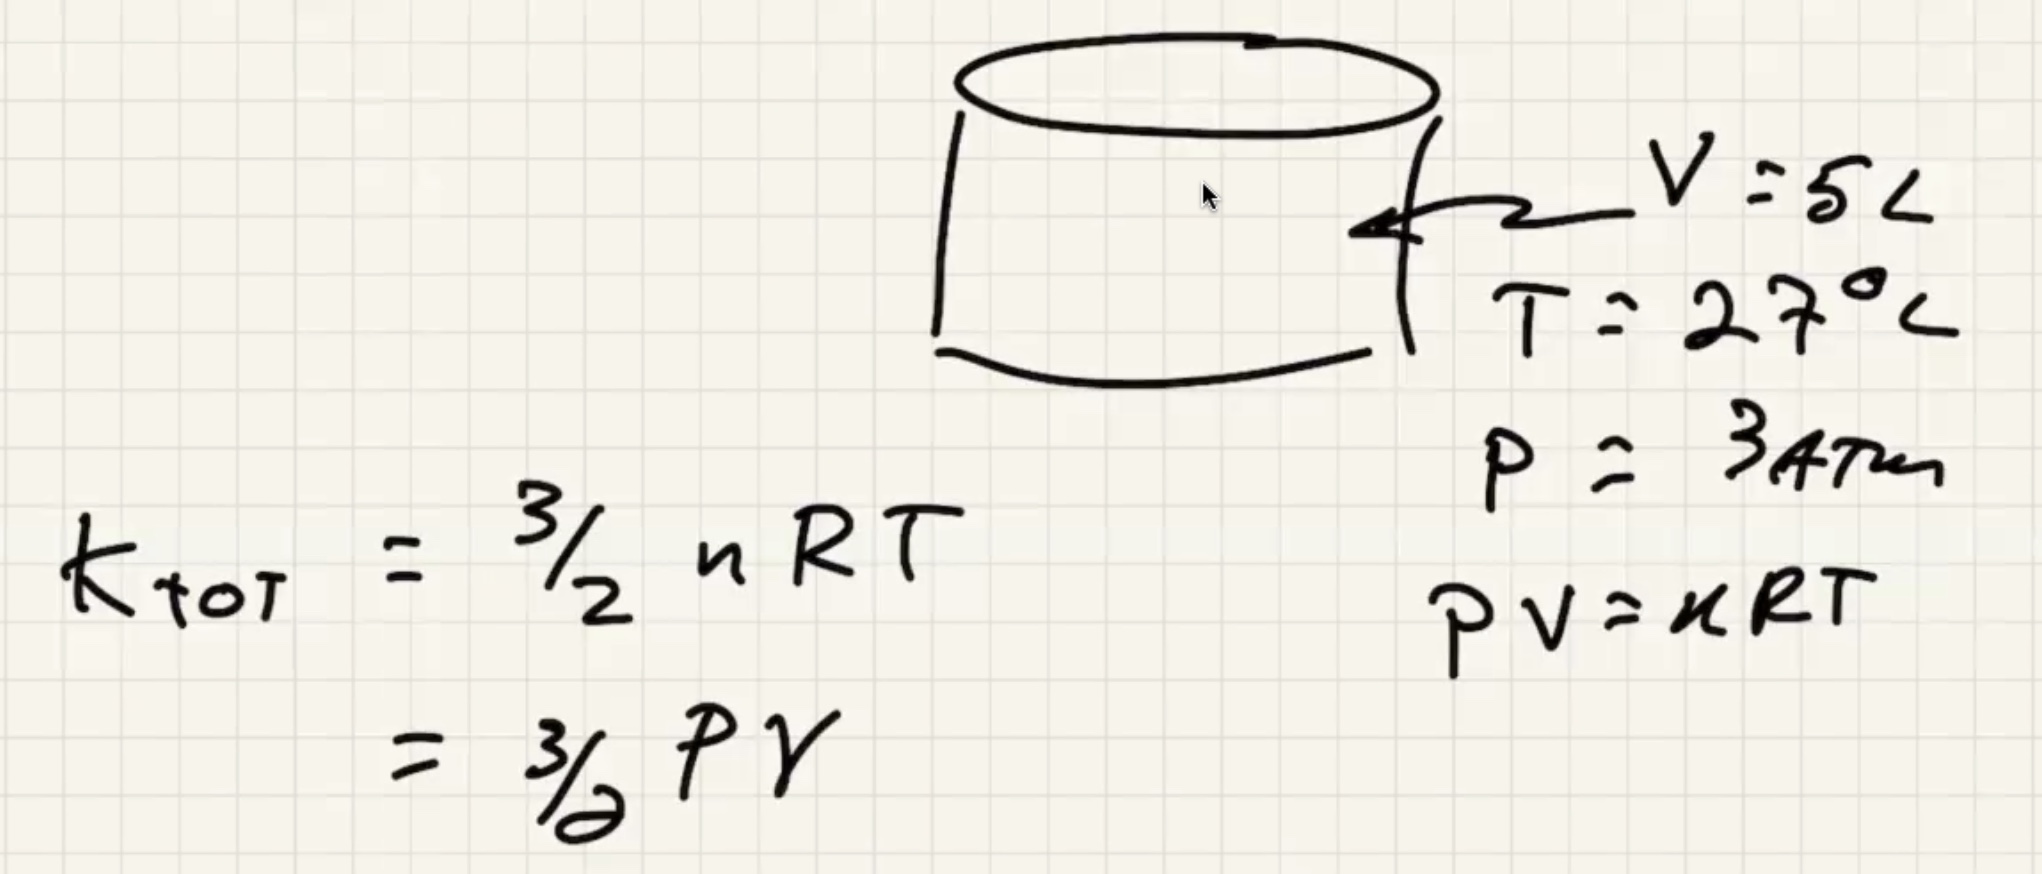 V = 5 L
T = 27°C
P = 3 ATM
PV = nRT
K TOT = 3/2 n R T
= 3/2 PV